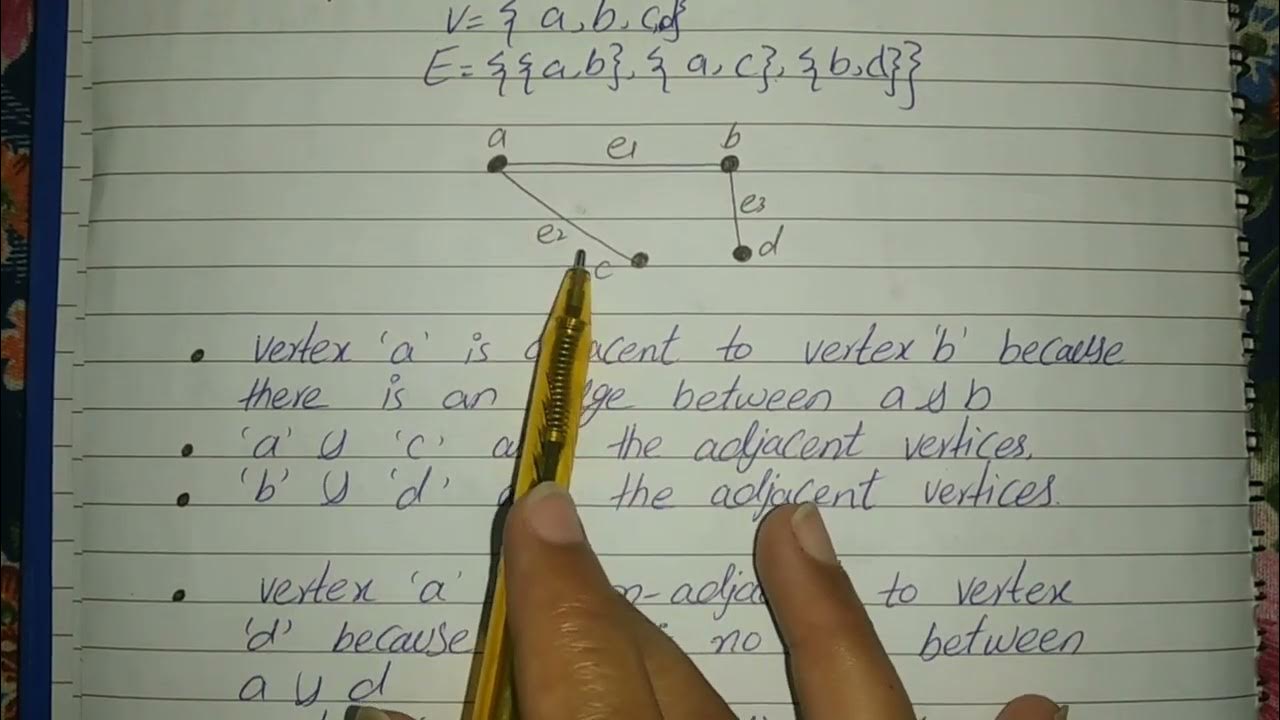 V = { a, b, c, d}
E = {{a,b}, {a, c}, {b,d}}
a e1 b
e3
e2
d
c
vertex 'a' is adjacent to vertex 'b' because
there is an edge between a & b
'a' & 'c' the adjacent vertices.
'b' & 'd' the adjacent vertices.
vertex 'a' to vertex
'd' because no between
a & d